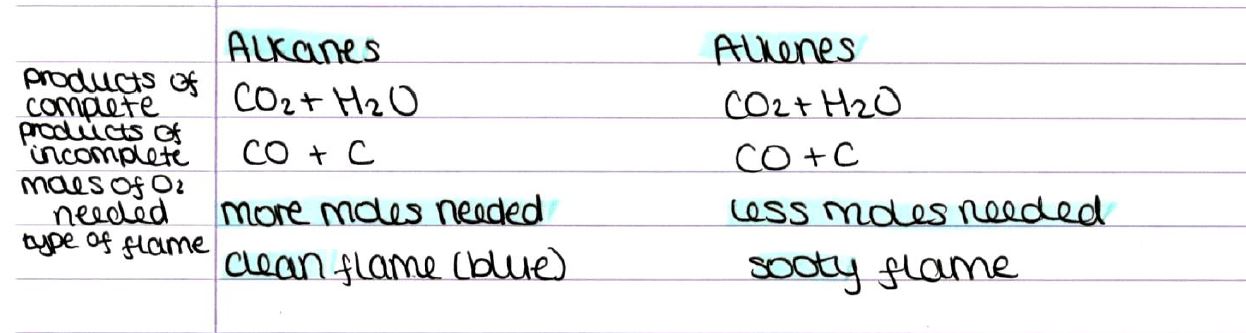 Alkanes Alkenes
products of
complete CO2 + H2O CO2 + H2O
products of
incomplete CO + C CO + C
moles of O2
needed more moles needed less moles needed
type of flame clean flame (blue) sooty flame